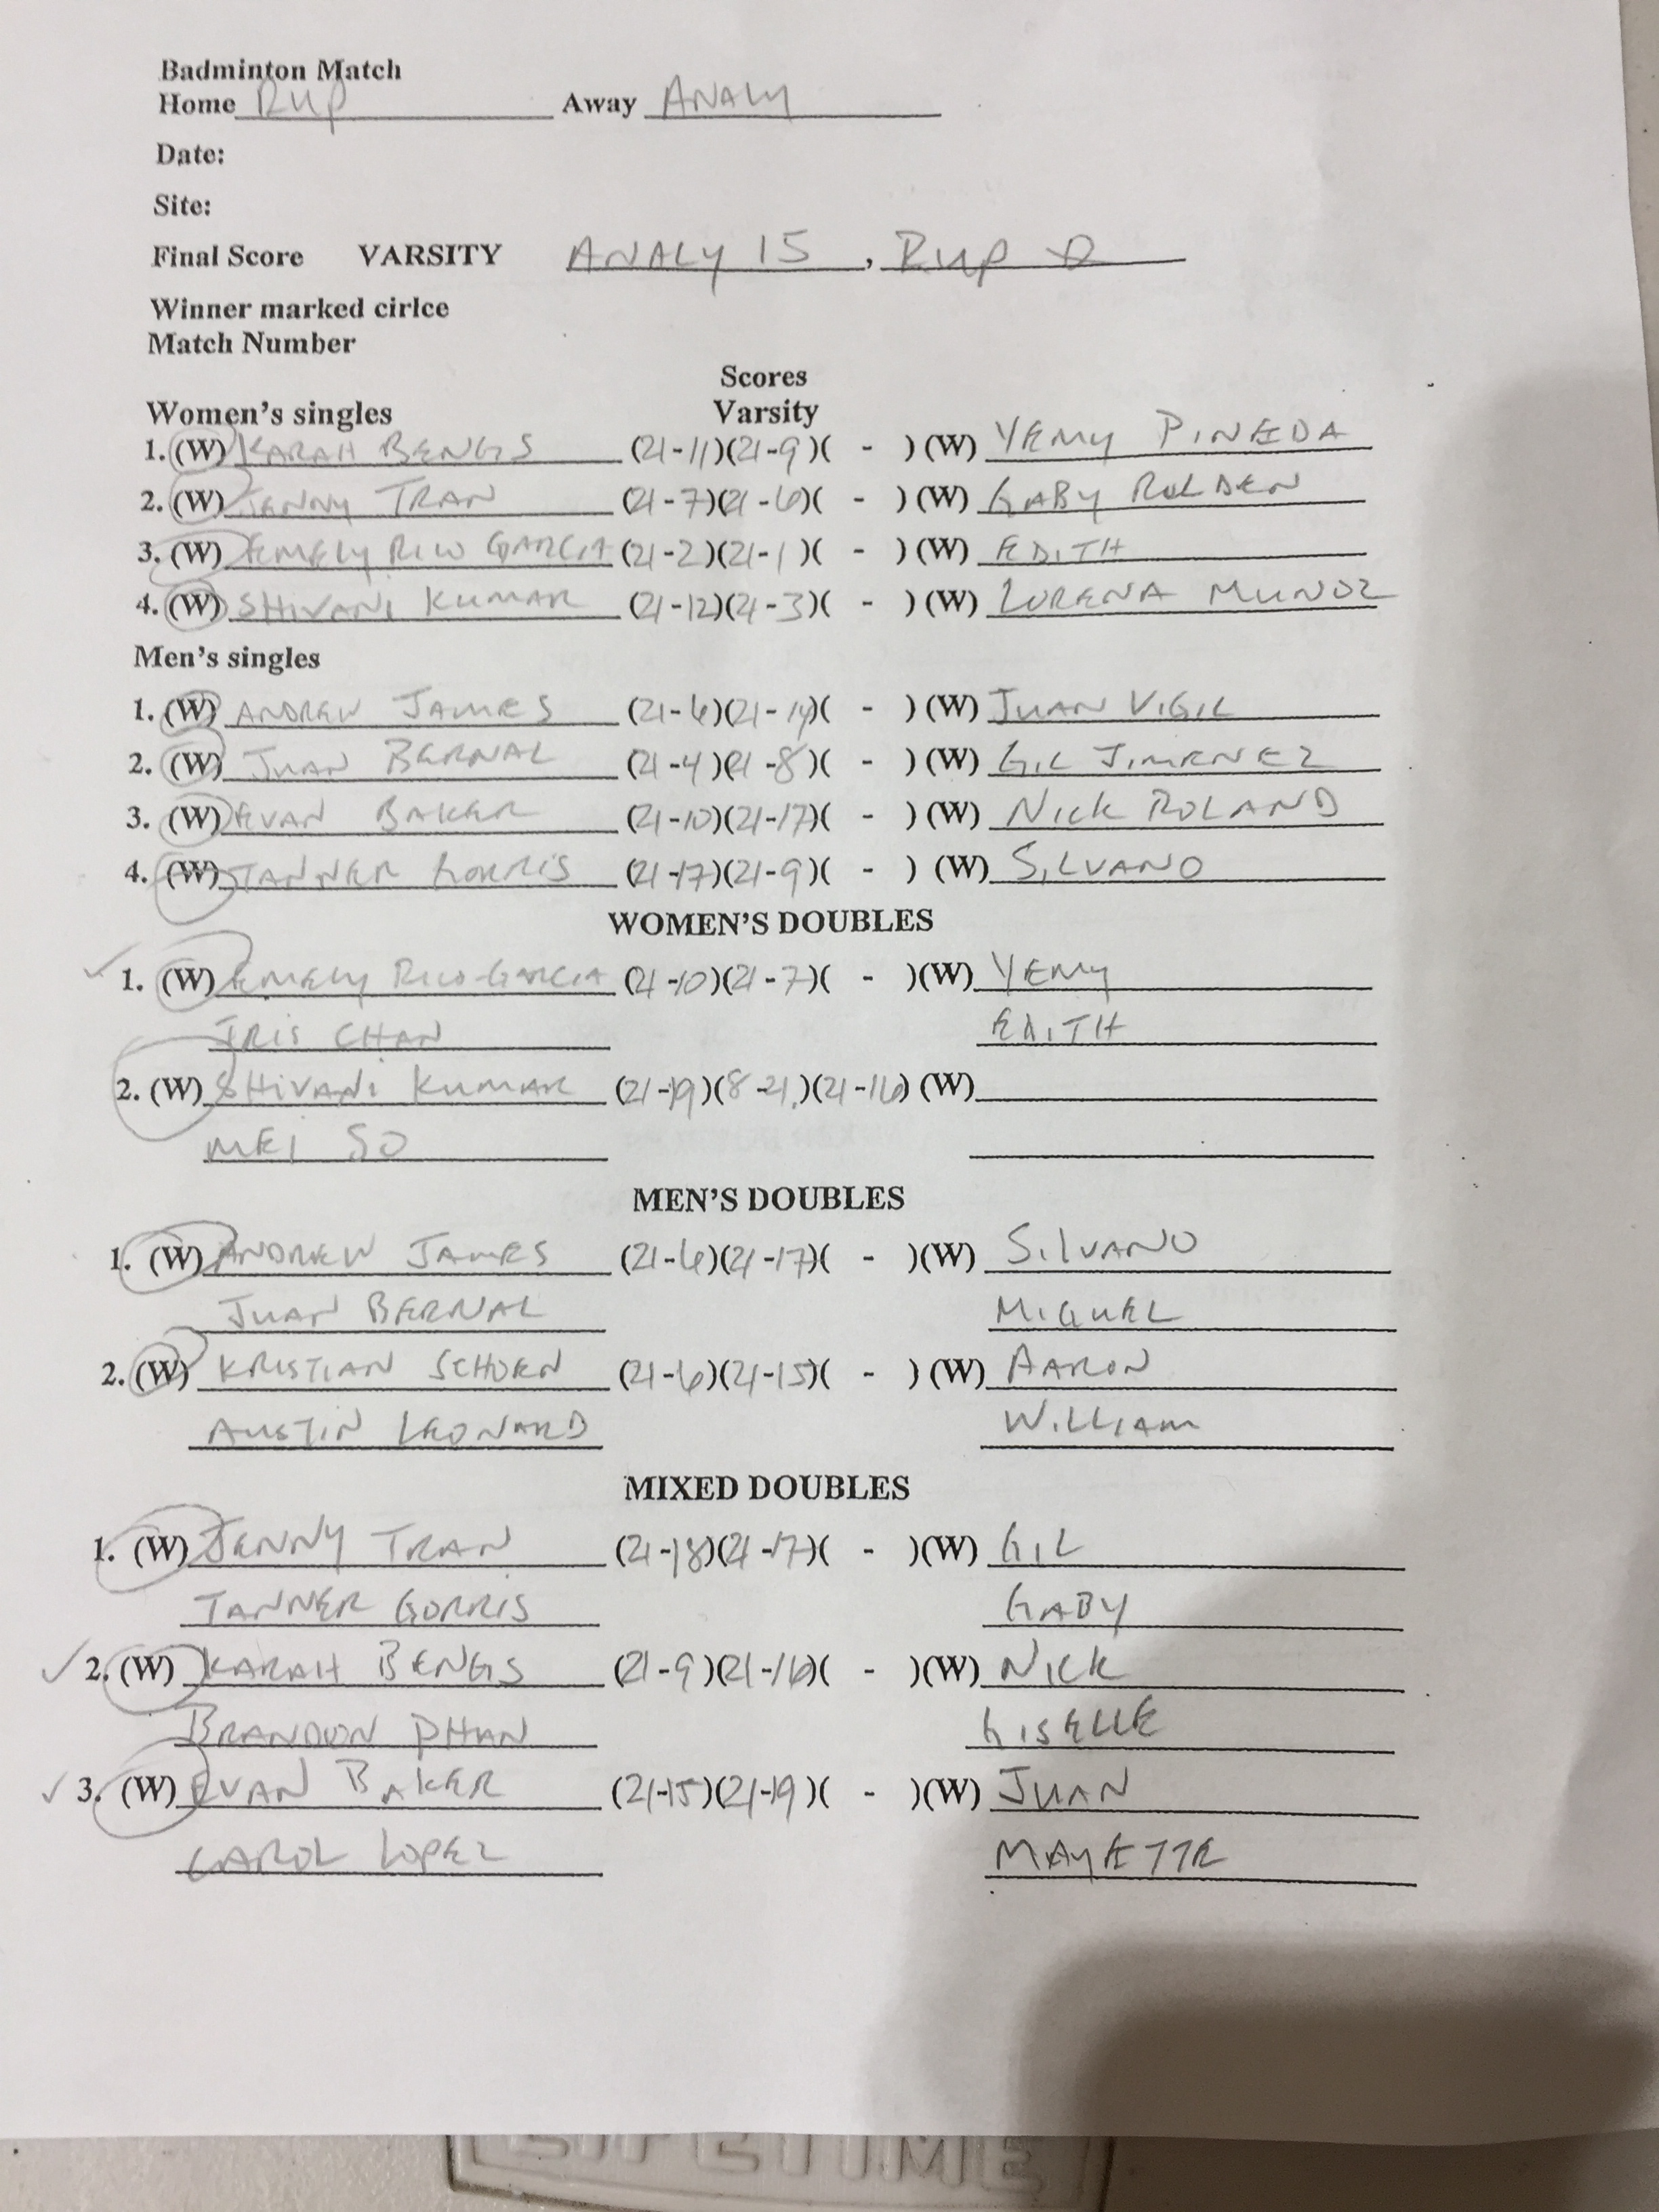 Badminton Match
Home RUP Away ANALY
Date:
Site:
Final Score VARSITY ANALY 15, RUP 0
Winner marked cirlce
Match Number
Scores
Women's singles Varsity
1. (W) KARAH BENGS (21-11)(21-9)( - ) (W) YEMY PINEDA
2. (W) JENNY TRAN (21-7)(21-6)( - ) (W) GABY ROLDEN
3. (W) EMELY RICO GARCIA (21-2)(21-1)( - ) (W) EDITH
4. (W) SHIVANI KUMAR (21-12)(21-3)( - ) (W) LORENA MUNOZ
Men's singles
1. (W) ANDREW JAMES (21-6)(21-14)( - ) (W) JUAN VIGIL
2. (W) JUAN BERNAL (21-4)(21-8)( - ) (W) GIL JIMENEZ
3. (W) EVAN BAKER (21-10)(21-17)( - ) (W) NICK ROLAND
4. (W) TANNER GORRIS (21-17)(21-9)( - ) (W) SILVANO
WOMEN'S DOUBLES
✓ 1. (W) EMELY RICO-GARCIA (21-10)(21-7)( - )(W) YEMY
IRIS CHAN EDITH
2. (W) SHIVANI KUMAR (21-19)(8-21)(21-16) (W)
MEI SO
MEN'S DOUBLES
1. (W) ANDREW JAMES (21-6)(21-17)( - )(W) SILVANO
JUAN BERNAL MIGUEL
2. (W) KRISTIAN SCHOEN (21-6)(21-15)( - ) (W) AARON
AUSTIN LEONARD WILLIAM
MIXED DOUBLES
1. (W) JENNY TRAN (21-18)(21-17)( - )(W) GIL
TANNER GORRIS GABY
✓ 2. (W) KARAH BENGS (21-9)(21-16)( - )(W) NICK
BRANDON PHAN GISELLE
✓ 3. (W) EVAN BAKER (21-15)(21-19)( - )(W) JUAN
CAROL LOPEZ MAYETTE
LIFETIME